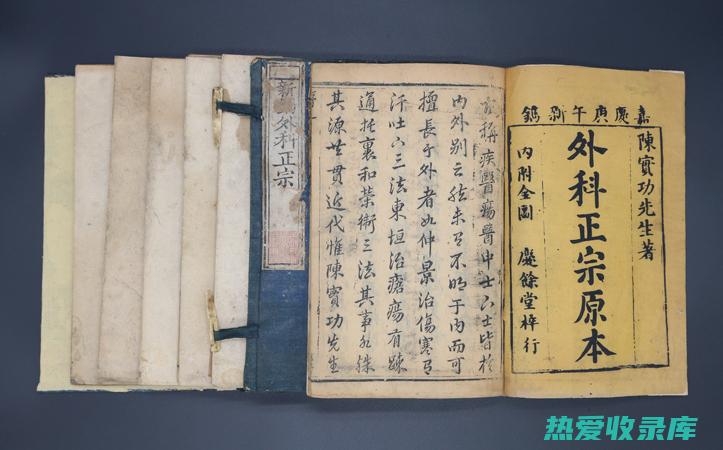 嘉慶庚午新鐫
陳實功先生著
外科正宗原本
內附全圖 慶餘堂梓行
稱疾醫瘍醫中士下士皆於
內外別之然未有不明于內而可
擅長于外者如仲景治傷寒有
汗吐下三法東垣治瘡瘍有疎
通托裏和榮衛三法其事殊
其源貫近代惟陳實功先生
新外科正宗
热爱收录库